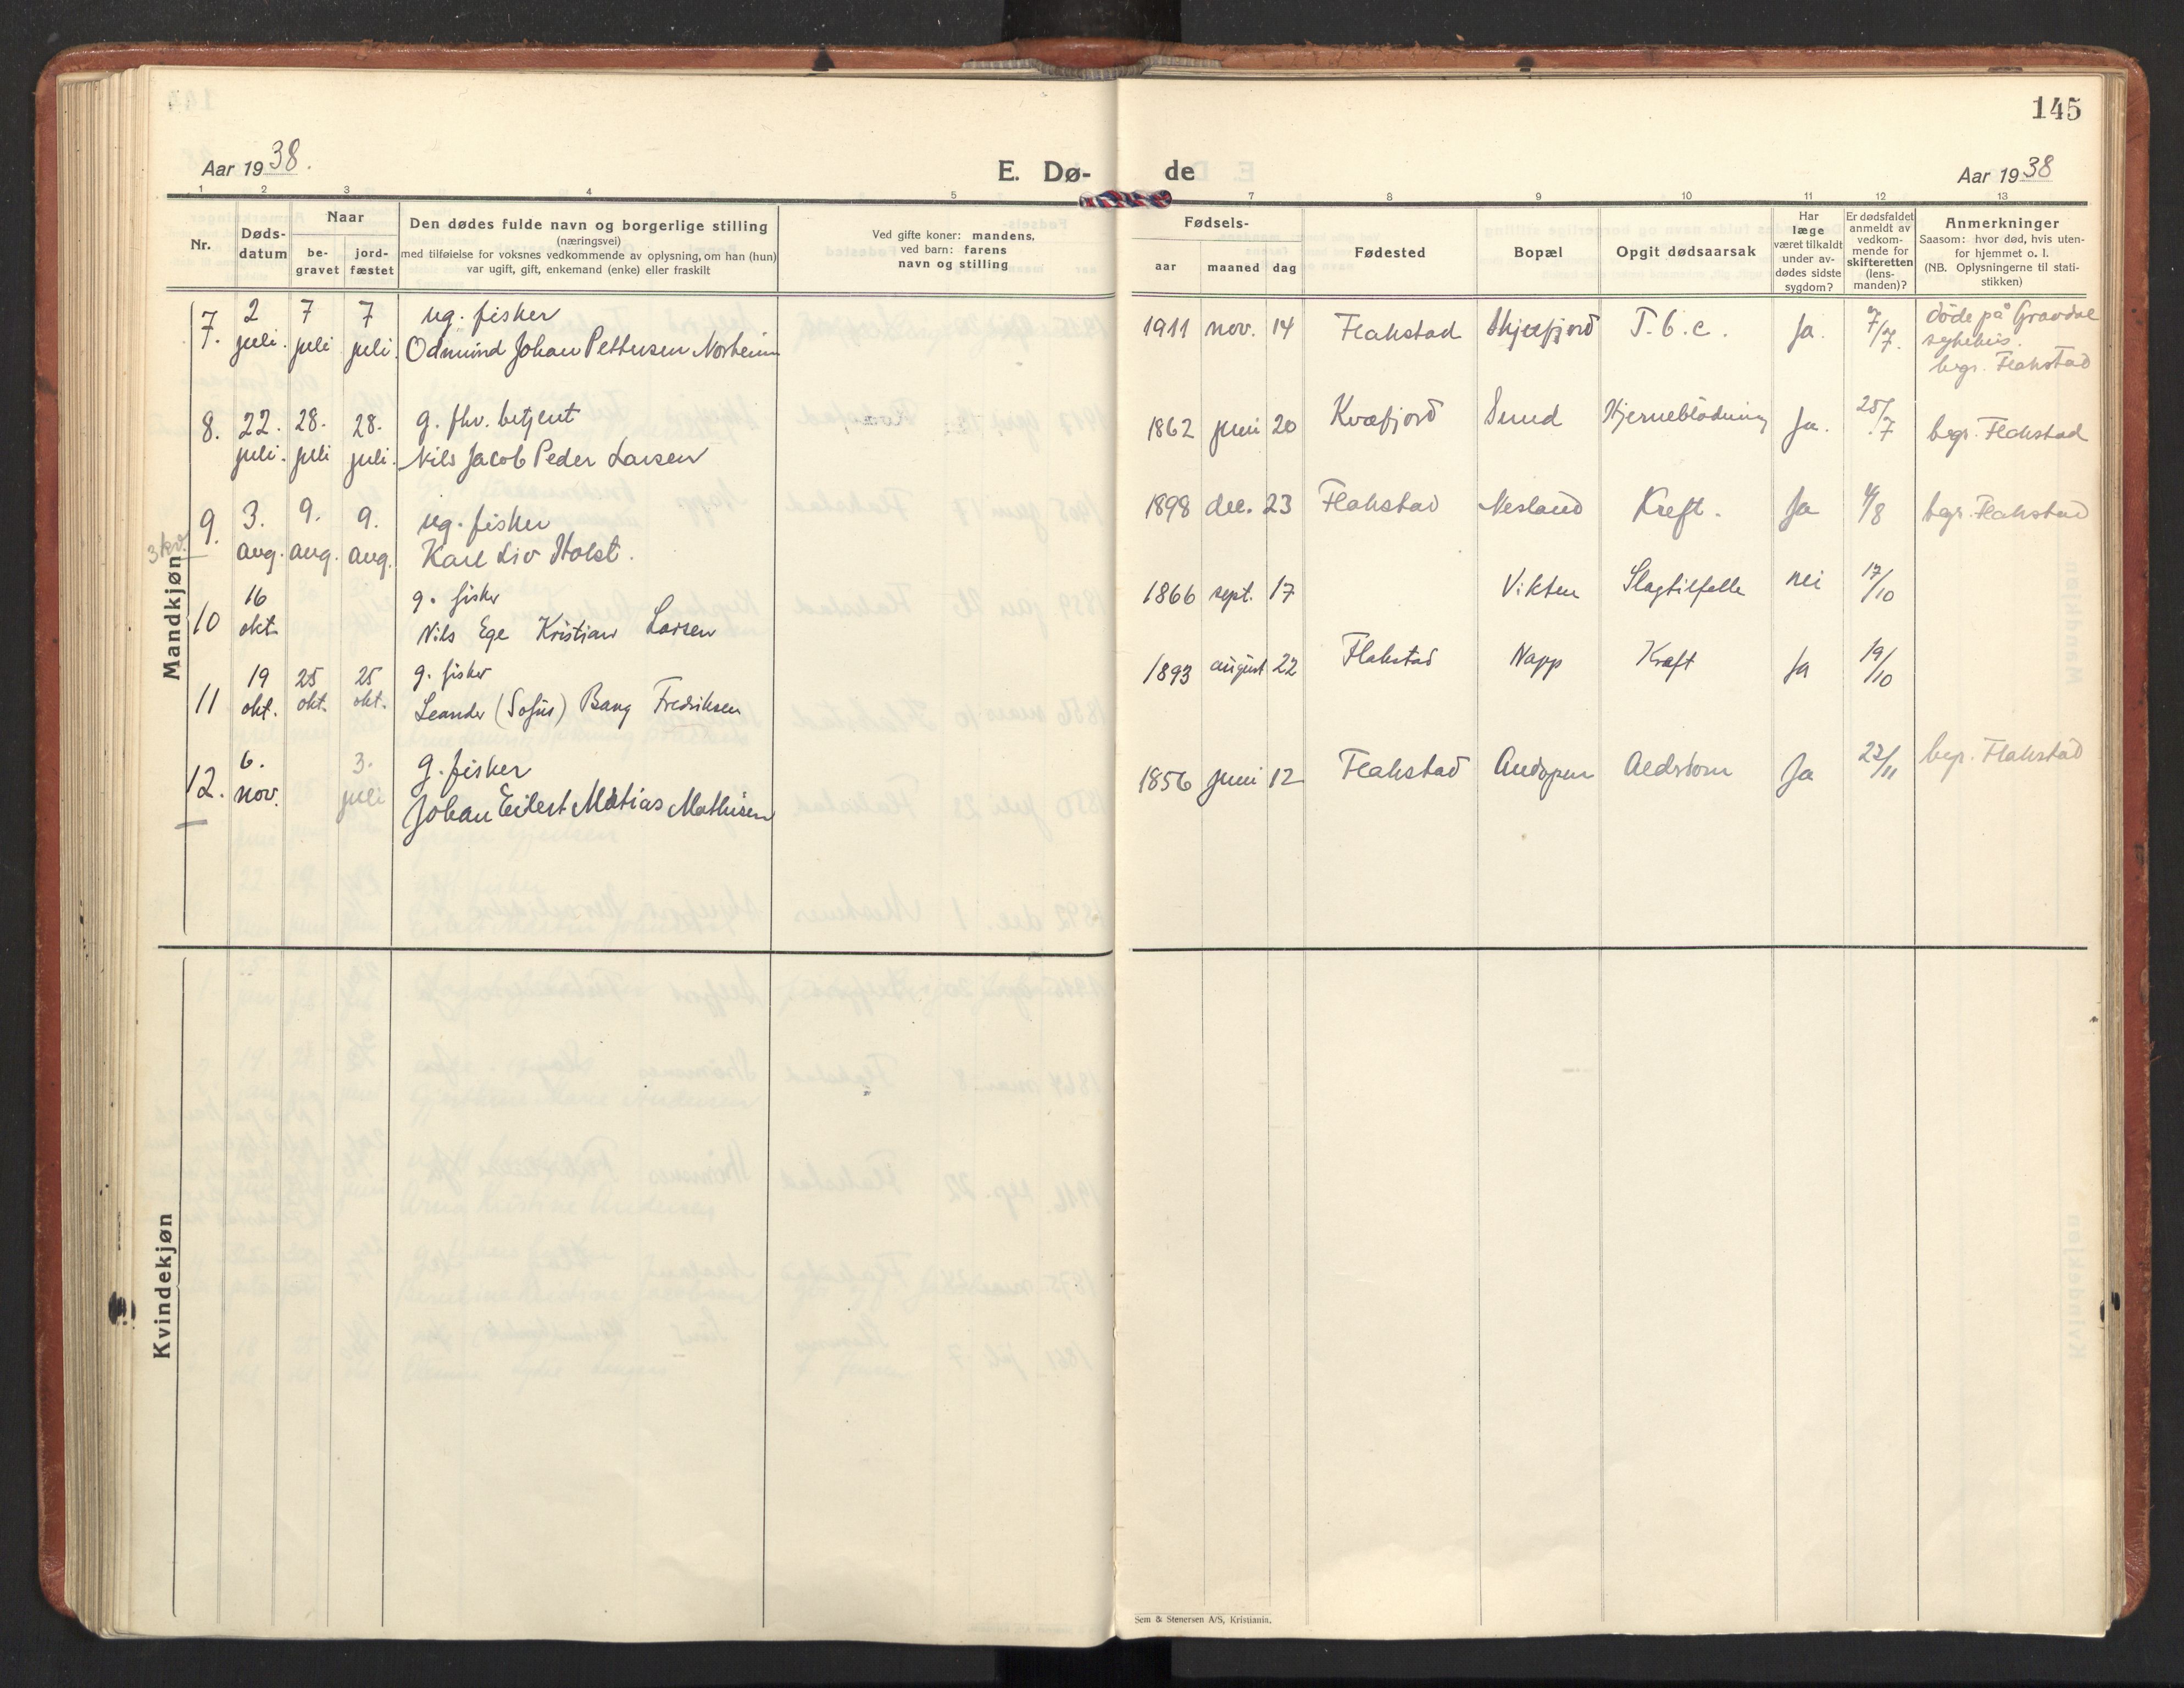 145
Aar 1938.
E. Dø-
de
Aar 1938
1 2 3 4 5 7 8 9 10 11 12 13
Nr.
Døds-
datum
Naar
be-
gravet
jord-
fæstet
Den dødes fulde navn og borgerlige stilling
(næringsvei)
med tilføielse for voksnes vedkommende av oplysning, om han (hun)
var ugift, gift, enkemand (enke) eller fraskilt
Ved gifte koner: mandens,
ved barn: farens
navn og stilling
Fødsels-
aar maaned dag
Fødested
Bopæl
Opgit dødsaarsak
Har
læge
været tilkaldt
under av-
dødes sidste
sygdom?
Er dødsfaldet
anmeldt av
vedkom-
mende for
skifteretten
(lens-
manden)?
Anmerkninger
Saasom: hvor død, hvis uten-
for hjemmet o. l.
(NB. Oplysningerne til stati-
stikken)
Mandkjøn
3 kv.
7. 2 juli. 7 juli 7 juli.
ug. fisker
Odmund Johan Pettersen Norheim
1911 nov. 14 Flakstad Skjelfjord T.b.c. Ja. 7/7.
døde på Gravdal
sykehus.
begr. Flakstad
8. 22. juli. 28. juli 28. juli.
g. fhv. betjent
Nils Jacob Peder Larsen
1862 juni 20 Kvæfjord Sund Hjerneblödning Ja. 25/7 begr. Flakstad
9. 3. aug. 9. aug. 9. aug.
ug. fisker
Karl Liv Holst.
1898 dec. 23 Flakstad Nesland Kreft. Ja /8 begr. Flakstad
10 16 okt.
g. fisker
Nils Ege Kristian Larsen
1866 sept. 17 Vikten Slagtilfelle nei 17/10
11 19 okt. 25 okt. 25 okt.
g. fisker
Leander (Sofus) Bang Fredriksen
1893 august 22 Flakstad Napp Kræft Ja 19/10
12. 6. nov. 3. juli
g. fisker
Johan Eilert Matias Mathisen
1856 juni 12 Flakstad Andopen Aldrdom Ja 22/11 begr. Flakstad
Kvindekjøn
Sem & Stenersen A/S, Kristiania.